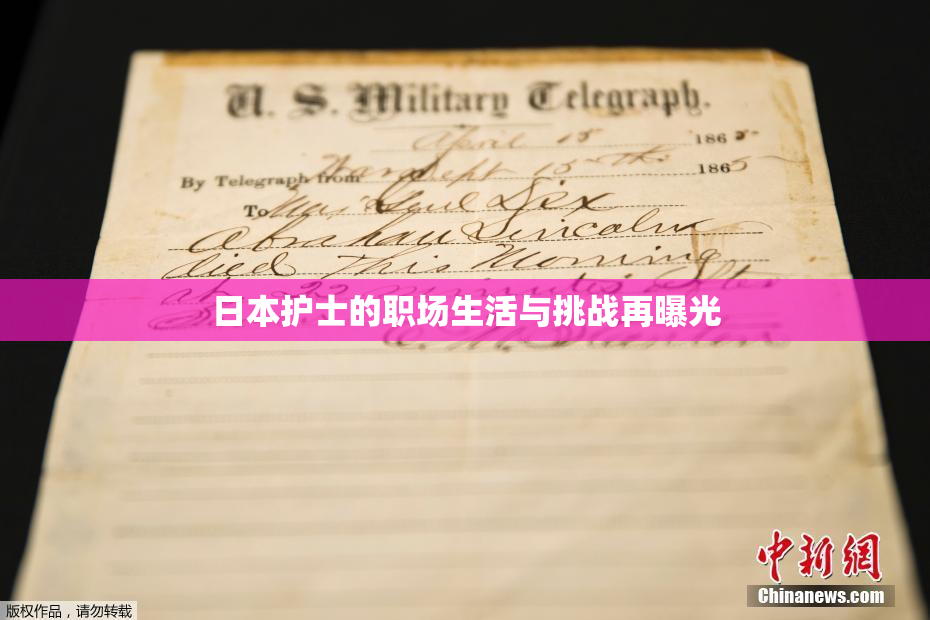 U. S. Military Telegraph.
April 15 1865.
By Telegraph from War Dept 15th 1865
To Maj Genl Dix
Abraham Lincoln
died This Morning
at 22 minutes after
日本护士的职场生活与挑战再曝光
中新網
版权作品，请勿转载
Chinanews.com